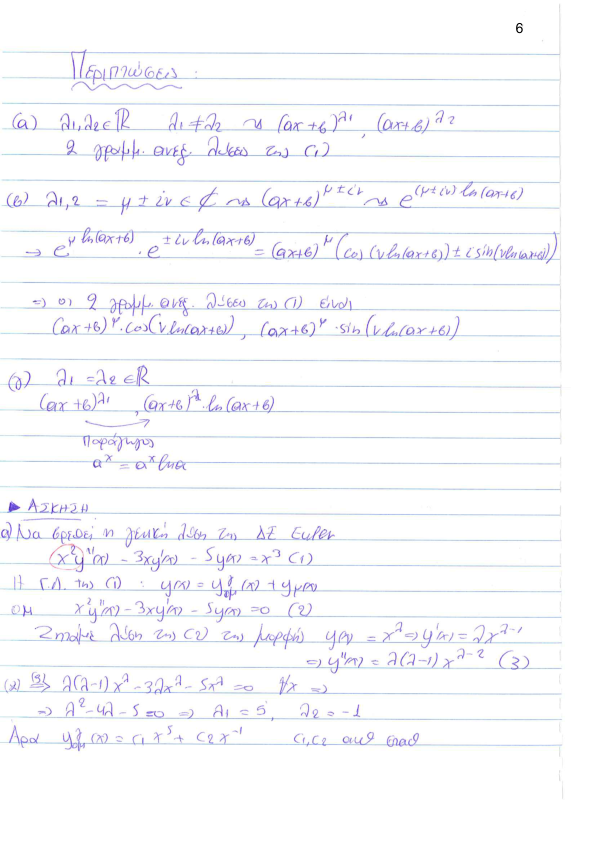 6
Περιπτώσεις :
(α) λ₁,λ₂ ∈ ℝ λ₁ ≠ λ₂ ⇝ (ax+b)^λ₁, (ax+b)^λ₂
2 γραμμ. ανεξ. λύσεις της (1)
(β) λ₁,₂ = μ ± iν ∈ ℂ ⇝ (ax+b)^(μ±iν) ⇝ e^((μ±iν) ln(ax+b))
→ e^(μ ln(ax+b)) · e^(±iν ln(ax+b)) = (ax+b)^μ (cos(ν ln(ax+b)) ± i sin(ν ln(ax+b)))
⇒ οι 2 γραμμ. ανεξ. λύσεις της (1) είναι
(ax+b)^μ · cos(ν ln(ax+b)), (ax+b)^μ · sin(ν ln(ax+b))
(γ) λ₁ = λ₂ ∈ ℝ
(ax+b)^λ₁, (ax+b)^λ · ln(ax+b)
Παράγωγος
a^x = a^x lna
▶ ΑΣΚΗΣΗ
α) Να βρεθεί η γενική λύση της ΔΕ Euler
x²y''(x) - 3xy'(x) - 5y(x) = x³ (1)
Η Γ.Λ. της (1) : y(x) = y^γ_ομ(x) + y_μ(x)
ΟΜ x²y''(x) - 3xy'(x) - 5y(x) = 0 (2)
Ζητάμε λύση της (2) της μορφής y(x) = x^λ ⇒ y'(x) = λx^(λ-1)
⇒ y''(x) = λ(λ-1)x^(λ-2) (3)
(2) ⇒(3) λ(λ-1)x^λ - 3λx^λ - 5x^λ = 0 ∀x ⇒
⇒ λ² - 4λ - 5 = 0 ⇒ λ₁ = 5, λ₂ = -1
Άρα y^γ_ομ(x) = c₁x⁵ + c₂x⁻¹ c₁,c₂ αυθ σταθ